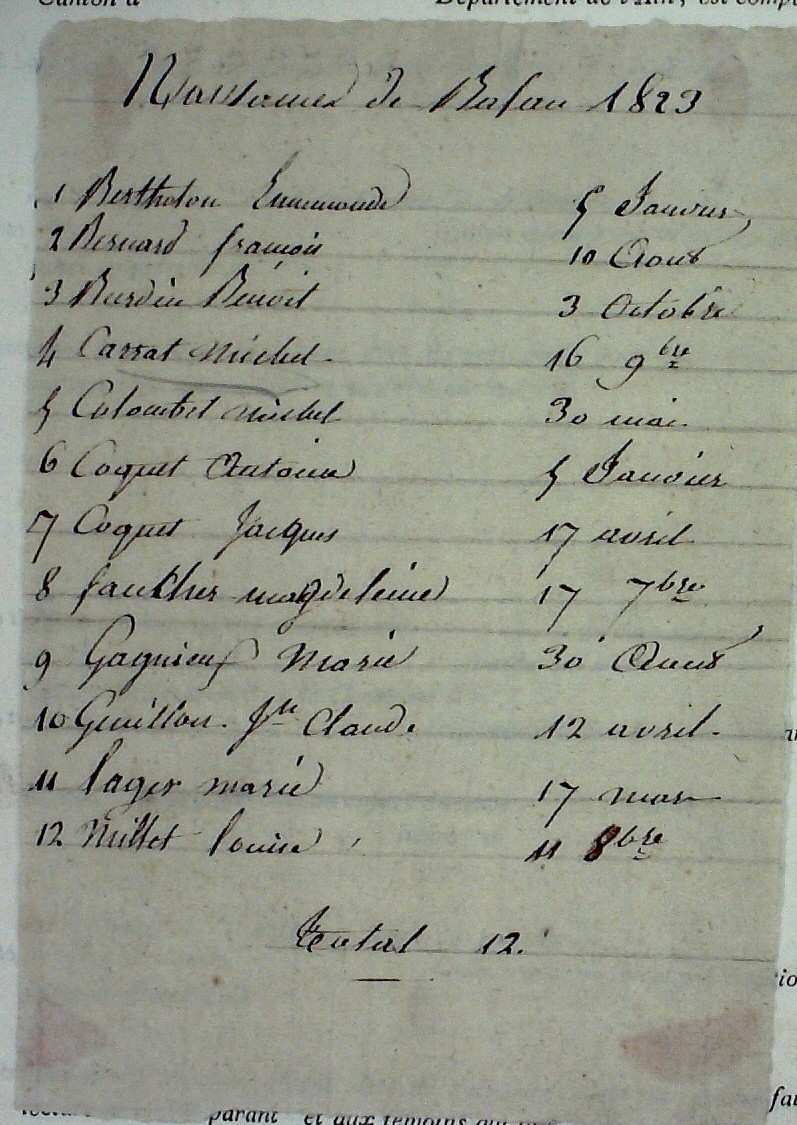 Canton d
Département de l'Ain, est comp
Naissances de Balan 1823
1 Berthelon Ennemonde 5 Janvier
2 Bernard françois 10 Aout
3 Burdin Benoit 3 Octobre
4 Carrat Michel 16 9bre
5 Colombet Michel 30 mai
6 Coquet Antoine 5 Janvier
7 Coquet Jacques 17 avril
8 magdeleine 17 7bre
9 Gagnieux Marie 30 Aout
10 Guillon Claude 12 avril
11 lager marie 17 mars
12 Millet louise 11 8bre
Total 12.
parant et aux témoins